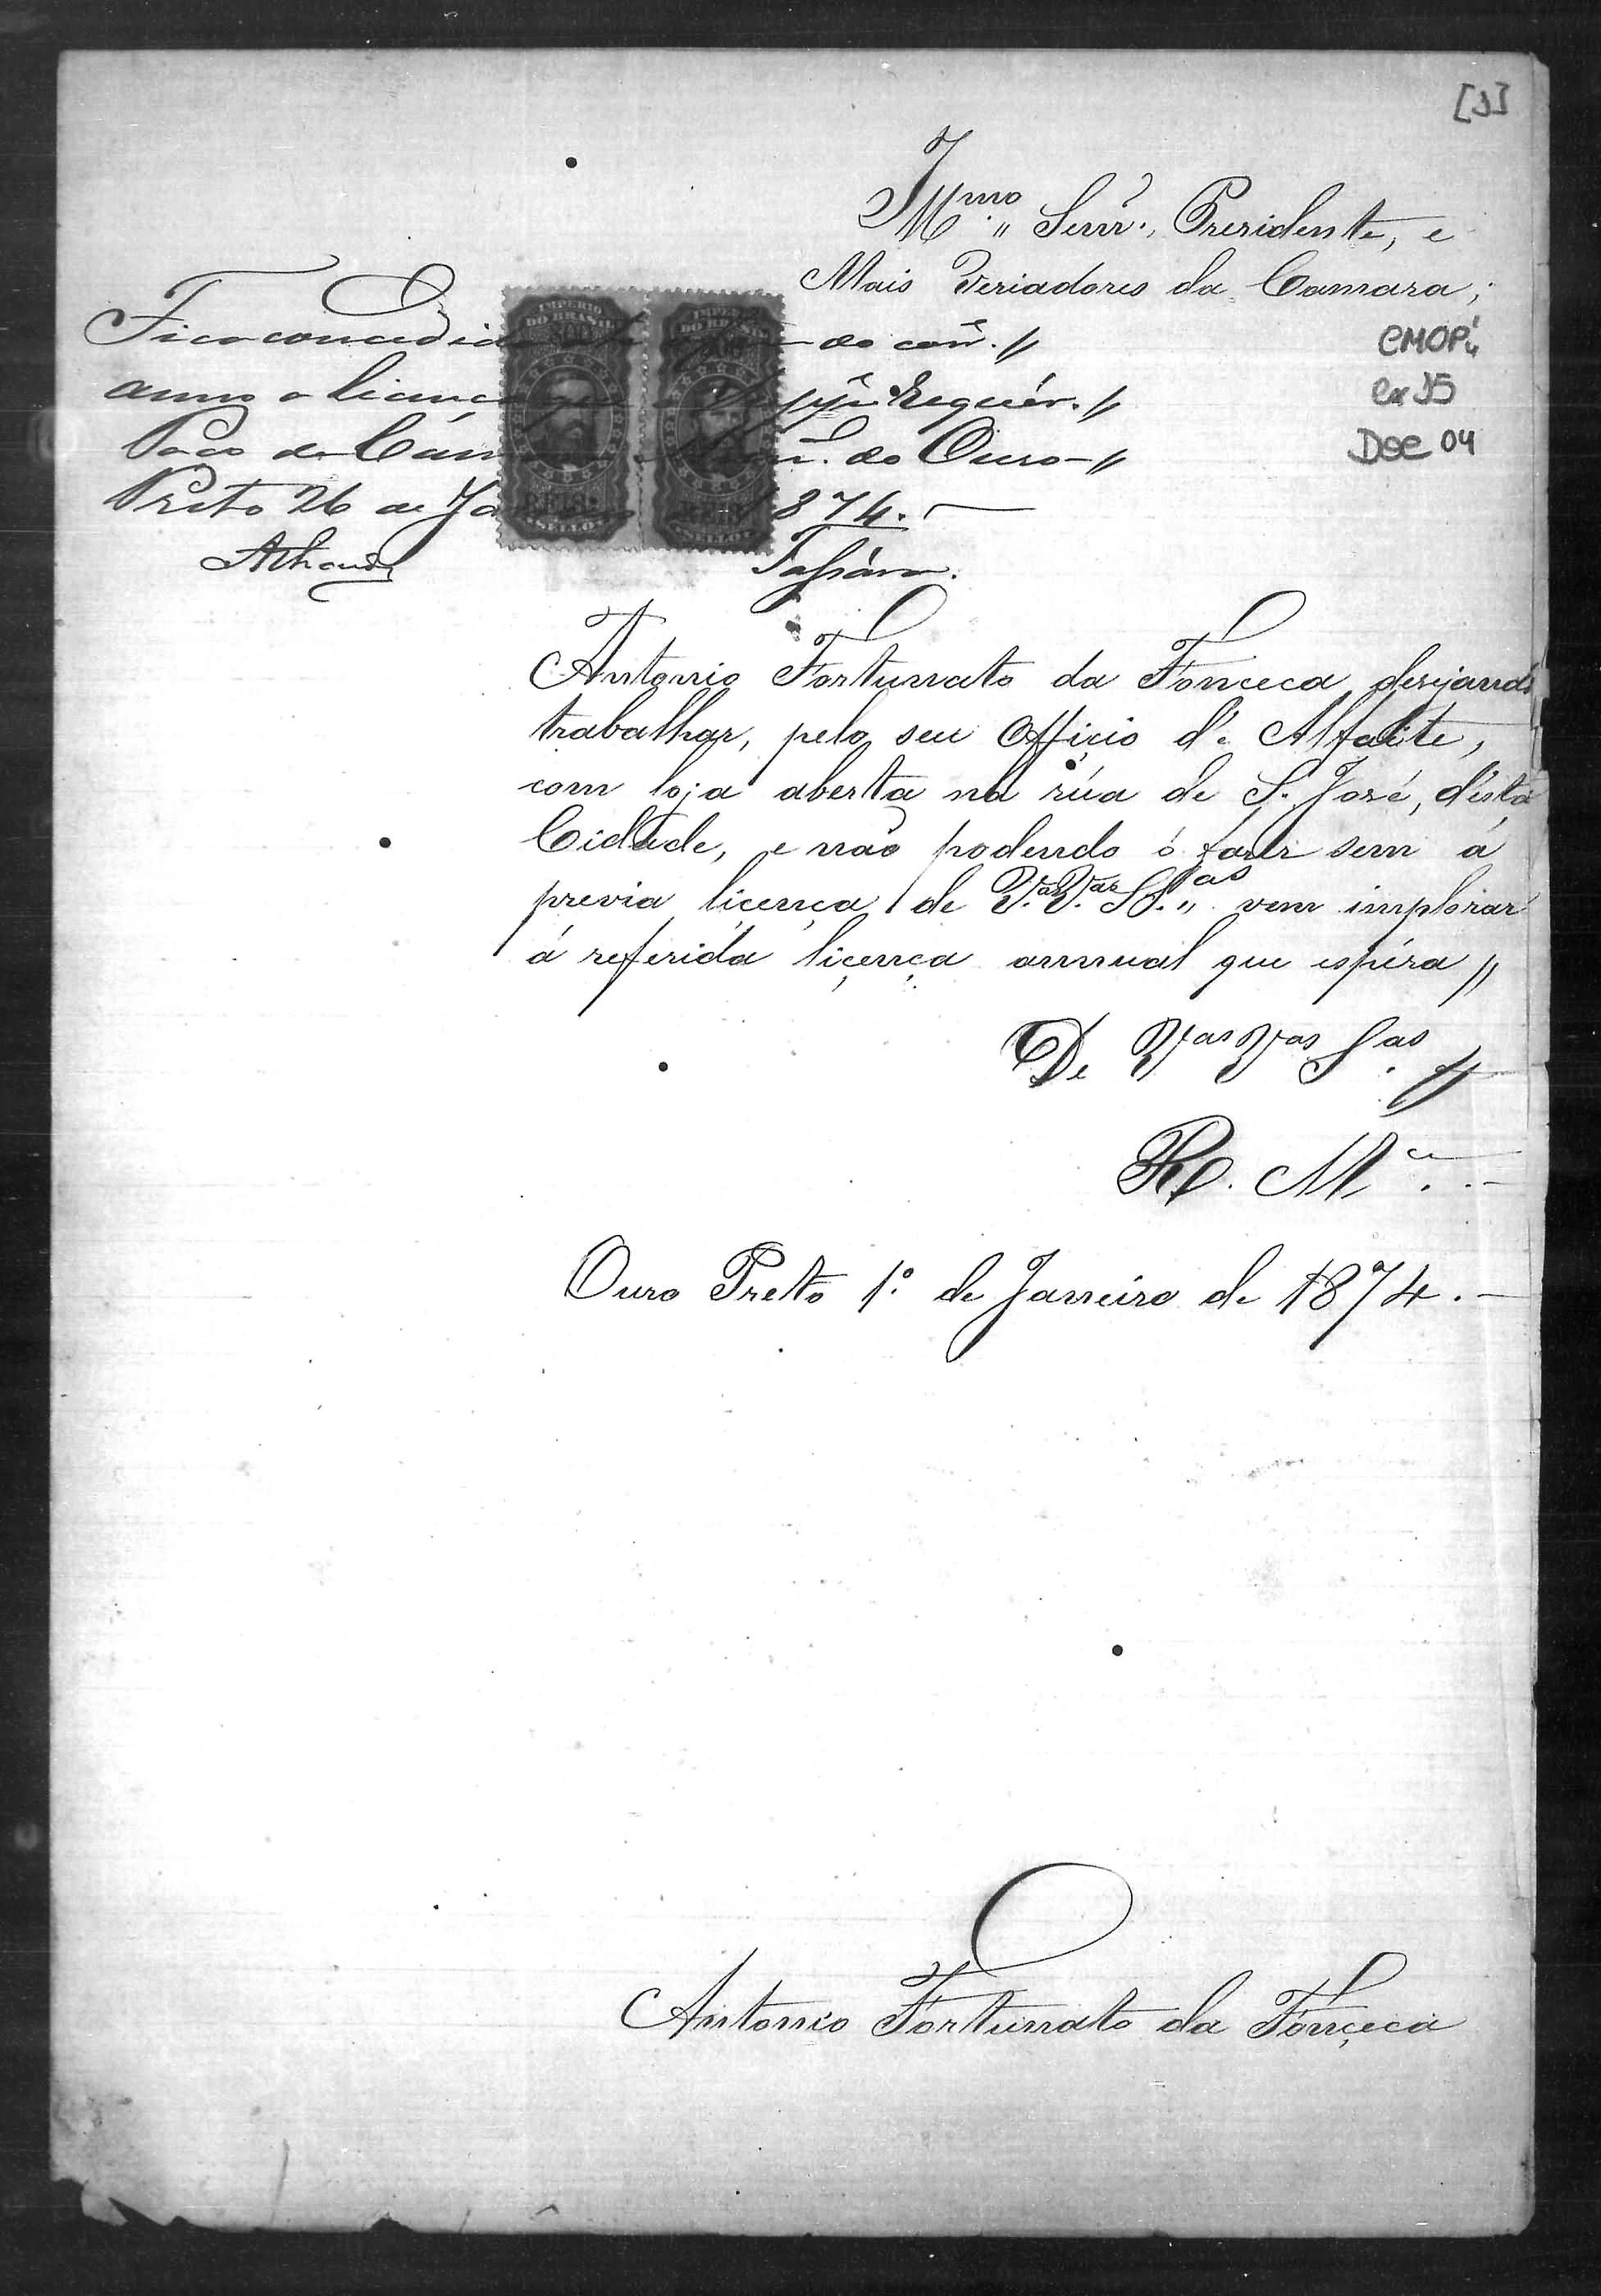 [1]
Illmo. Senr. Prezidente, e
Mais Veriadores da Camara;
CMOP
Cx 15
Doc 04
Fica concedida do corr.
anno a licença que o Suppe. requér.
Paço da Camara do Ouro
Preto 26 de Ja 1874.
IMPERIO DO BRASIL
REIS
SELLO
IMPERIO DO BRASIL
REIS
SELLO
Antonio Fortunato da Fonceca desejando
trabalhar, pelo seu Officio d'e Alfaite,
com loja aberta na rúa de S. José, d'ésta
Cidade, e não podendo ó fazer sem á
previa liçença de V.as V.as SS.as vem implorar
á referida liçença annual que espéra
De Vas Vas Sas
R. M.ce
Ouro Preto 1º. de Janneiro de 1874.
Antonio Fortunato da Fonçeca